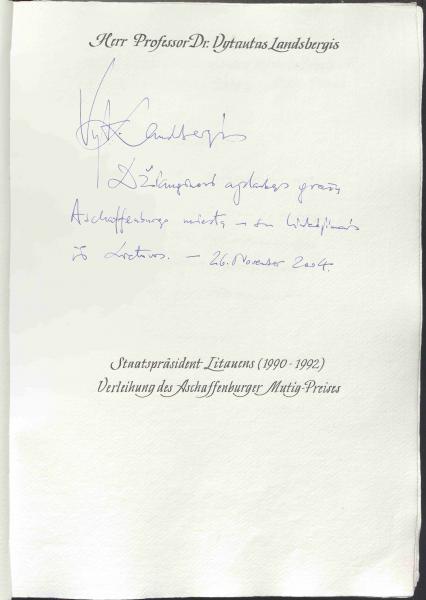 Herr Professor Dr. Vytautas Landsbergis
Vyt. Landsbergis
Džiaugiuosi aplankęs gražų
Aschaffenburgo miestą – su linkėjimais
iš Lietuvos. – 26. November 2004.
Staatspräsident Litauens (1990 - 1992)
Verleihung des Aschaffenburger Mutig-Preises